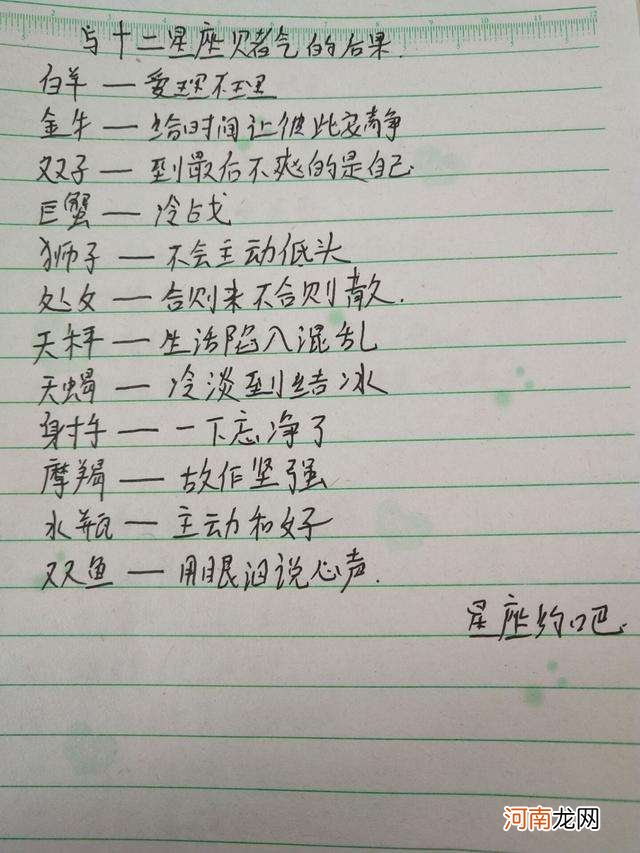 与十二星座赌气的后果.
白羊—爱理不理
金牛—给时间让彼此安静
双子—到最后不爽的是自己.
巨蟹—冷占戈
狮子—不会主动低头
处女—合则来不合则散久.
天秤—生活陷入混乱
天蝎—冷淡到结冰
射手—一下忘净了
摩羯—故作坚强
水瓶—主动和好
双鱼—用眼泪说心声.
星座约吧.
河南龙网